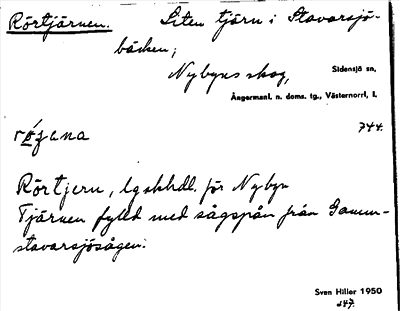 Rörtjärnen. Liten tjärn i Stavarsjö-
bäcken;
Nybyns skog,
Sidensjö sn,
Ångermanl. n. doms. tg., Västernorrl. l.
744.
Rörtjern, lgskhdl. för Nybyn
Tjärnen fylld med sågspån från Gamm-
stavarsjösågen.
Sven Hiller 1950